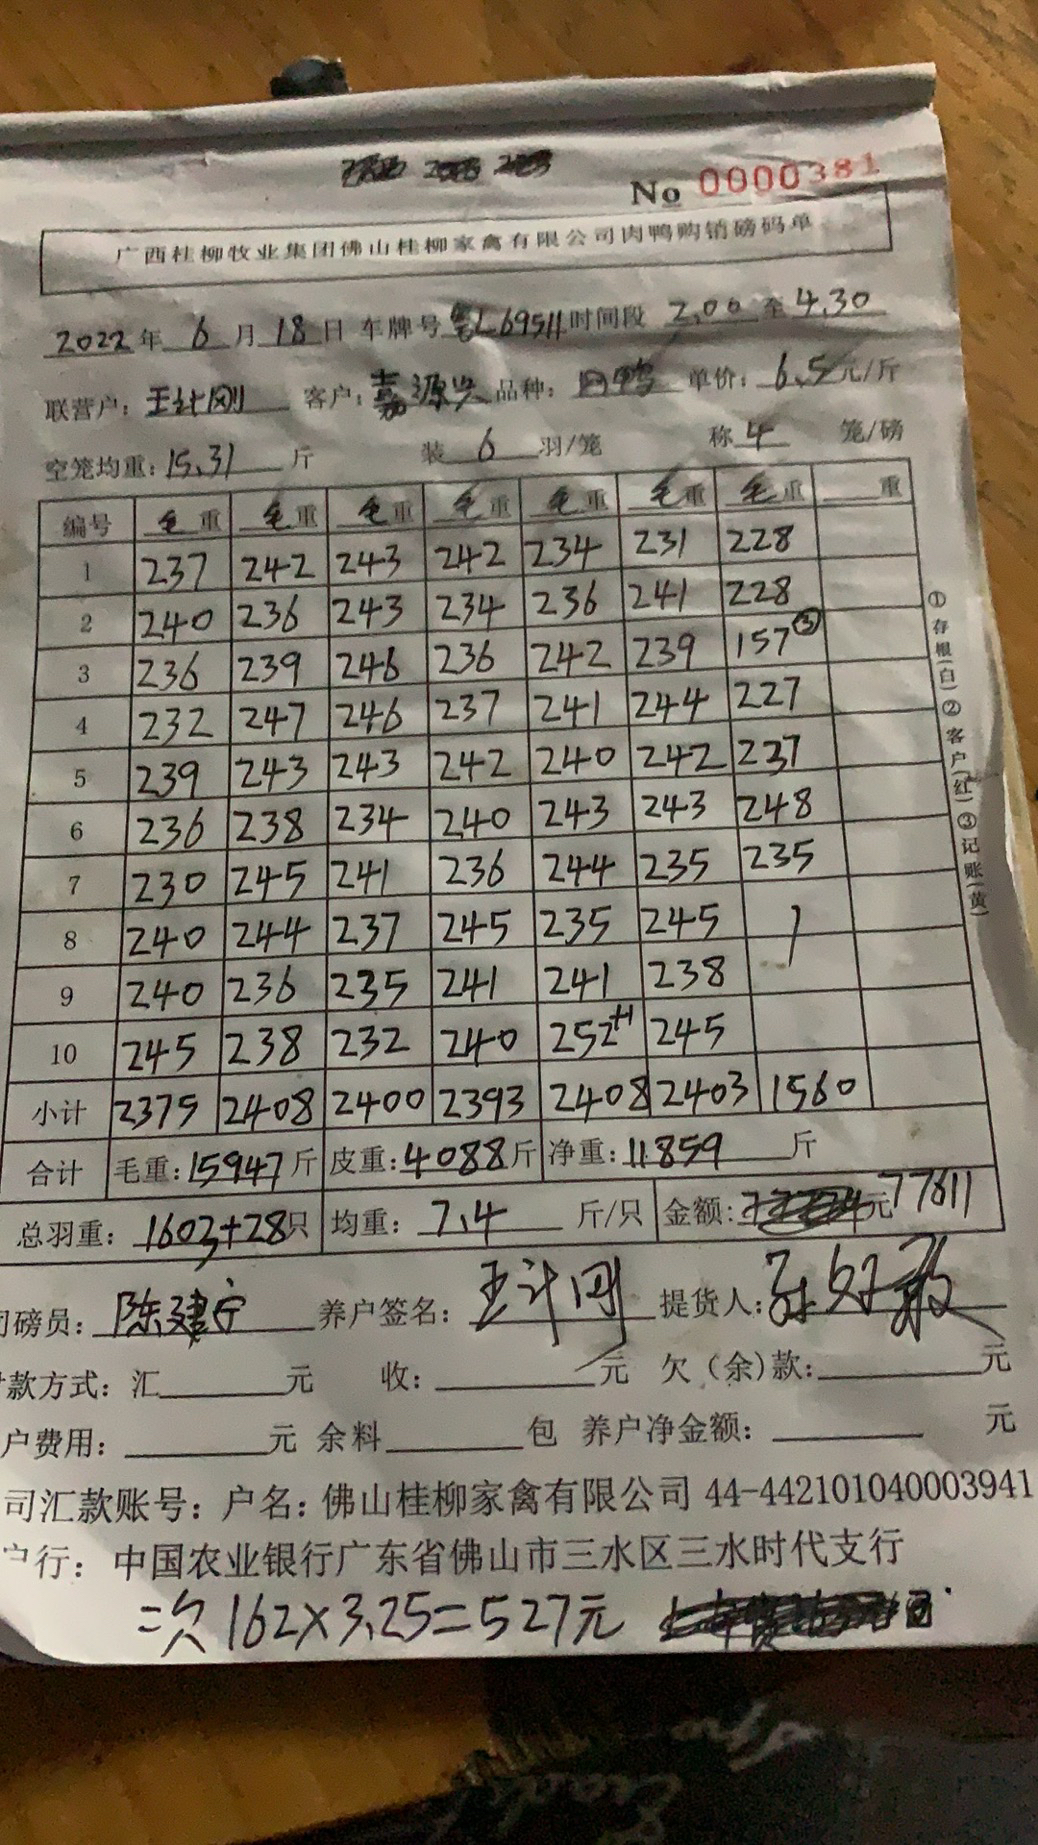 No 0000381
广西桂柳牧业集团佛山桂柳家禽有限公司肉鸭购销磅码单
2022年 6 月 18 日 车牌号 L69511 时间段 2.00 至 4.30
联营户: 王计刚 客户: 嘉源兴 品种: 单价: 6.5 元/斤
空笼均重: 15.31 斤 装 6 羽/笼 称 4 笼/磅
编号 毛重 毛重 毛重 毛重 毛重 毛重 毛重 重
1 237 242 243 242 234 231 228
2 240 236 243 234 236 241 228
3 236 239 246 236 242 239 157③
4 232 247 246 237 241 244 227
5 239 243 243 242 240 242 237
6 236 238 234 240 243 243 248
7 230 245 241 236 244 235 235
8 240 244 237 245 235 245
9 240 236 235 241 241 238
10 245 238 232 240 252+1 245
小计 2375 2408 2400 2393 2408 2403 1560
合计 毛重: 15947 斤 皮重: 4088 斤 净重: 11859 斤
总羽重: 1603+28 只 均重: 7.4 斤/只 金额: 元 77611
磅员: 陈建宁 养户签名: 王计刚 提货人:
款方式: 汇 元 收: 元 欠(余)款: 元
户费用: 元 余料 包 养户净金额: 元
司汇款账号: 户名: 佛山桂柳家禽有限公司 44-442101040003941
户行: 中国农业银行广东省佛山市三水区三水时代支行
二次 162×3.25=527元
①存根(白)②客户(红)③记账(黄)